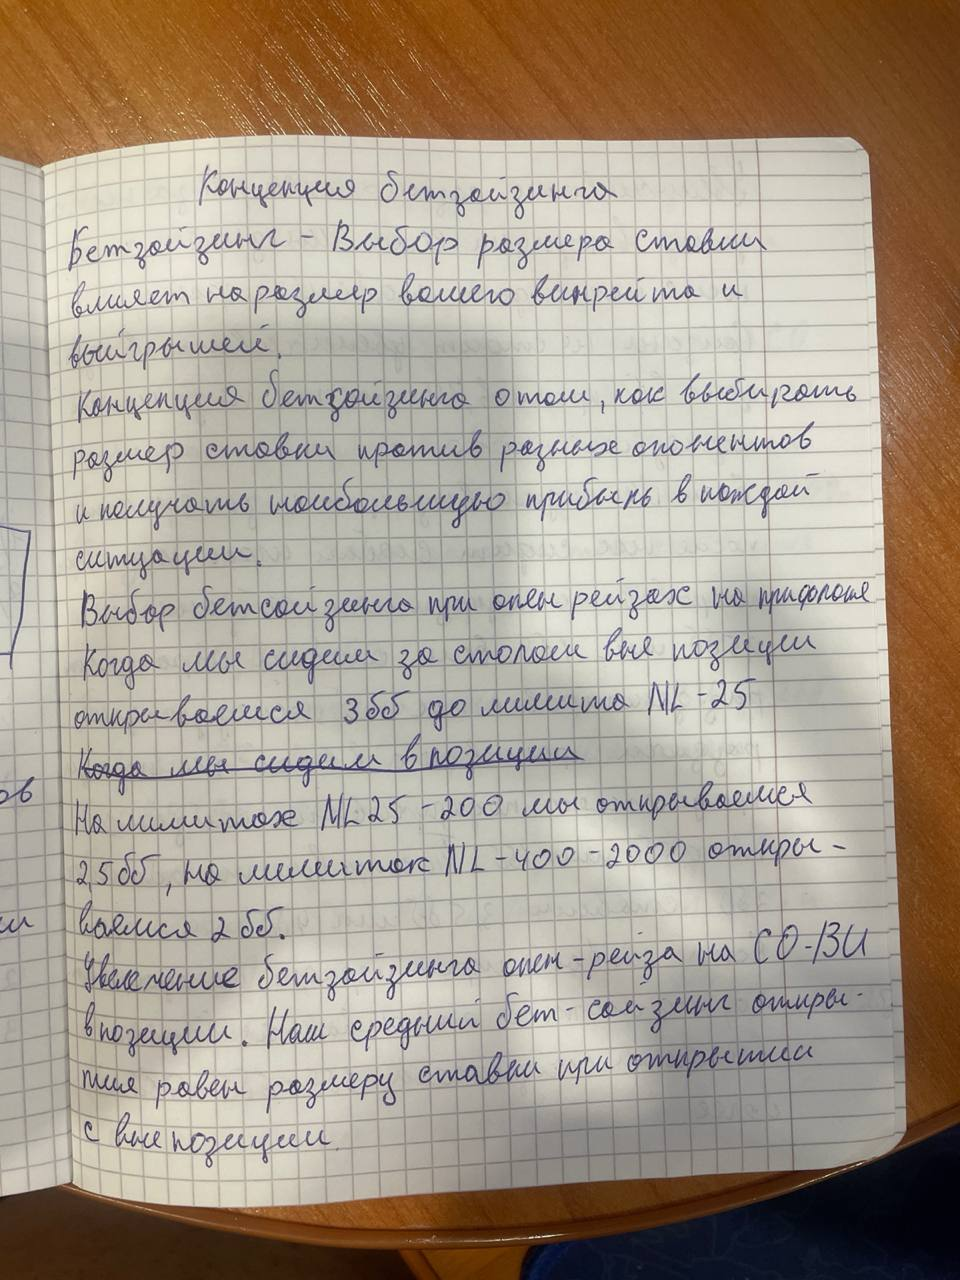 Концепция бетзайзинга
Бетзайзинг - Выбор размера ставки
влияет на размер вашего винрейта и
выйгрышей.
Концепция бетзайзинга о том, как выбирать
размер ставки против разных опонентов
и получать наибольшую прибыль в каждой
ситуации.
Выбор бетсайзинга при опен рейзах на прифлопе
Когда мы сидим за столом вне позиции
открываемся 3бб до лимита NL-25
Когда мы сидим в позиции
На лимитах NL25-200 мы открываемся
2,5бб, на лимитах NL-400-2000 откры-
ваемся 2бб.
Увелечение бетзайзинга опен-рейза на CO-BU
в позиции. Наш средний бет-сайзинг откры-
тия равен размеру ставки при открытии
с вне позиции.
ов